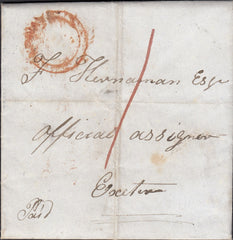 F. Hernaman Esqr
Official assignee
Exeter
Paid